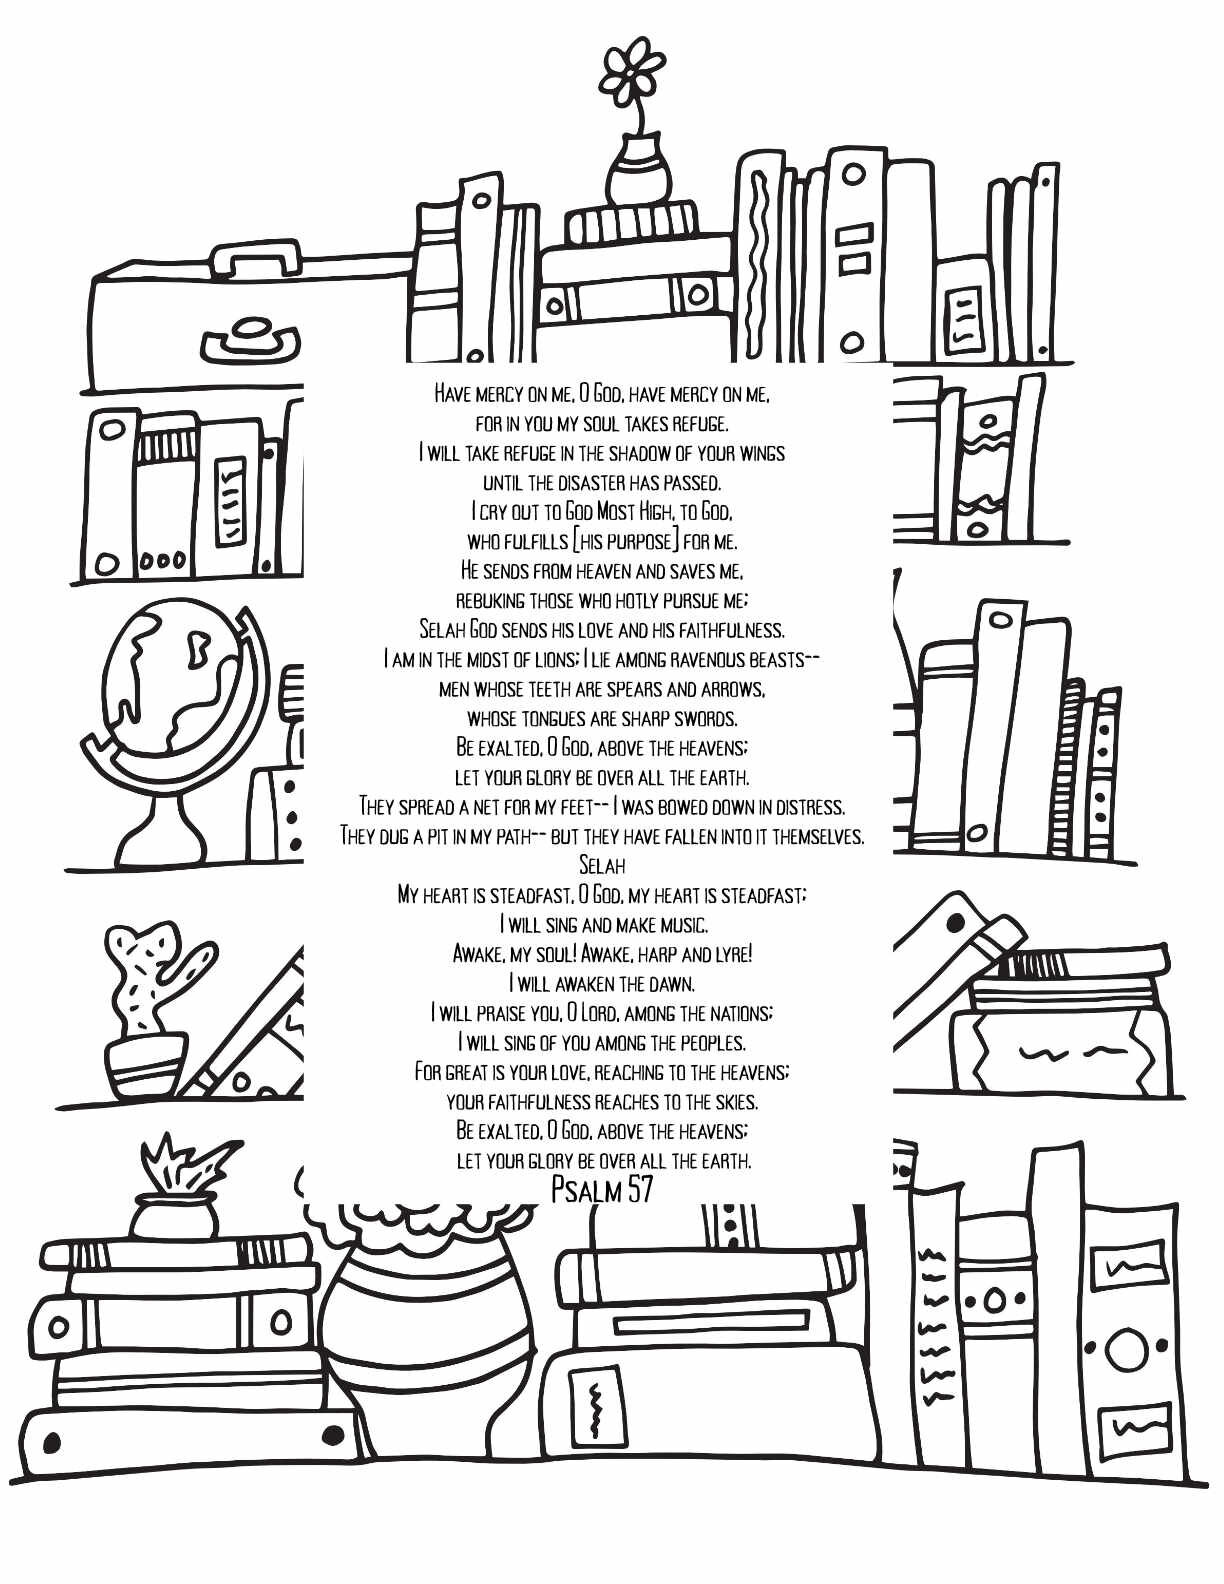 Have mercy on me, O God, have mercy on me,
for in you my soul takes refuge.
I will take refuge in the shadow of your wings
until the disaster has passed.
I cry out to God Most High, to God,
who fulfills [his purpose] for me.
He sends from heaven and saves me,
rebuking those who hotly pursue me;
Selah God sends his love and his faithfulness.
I am in the midst of lions; I lie among ravenous beasts--
men whose teeth are spears and arrows,
whose tongues are sharp swords.
Be exalted, O God, above the heavens;
let your glory be over all the earth.
They spread a net for my feet-- I was bowed down in distress.
They dug a pit in my path-- but they have fallen into it themselves.
Selah
My heart is steadfast, O God, my heart is steadfast;
I will sing and make music.
Awake, my soul! Awake, harp and lyre!
I will awaken the dawn.
I will praise you, O Lord, among the nations;
I will sing of you among the peoples.
For great is your love, reaching to the heavens;
your faithfulness reaches to the skies.
Be exalted, O God, above the heavens;
let your glory be over all the earth.
Psalm 57